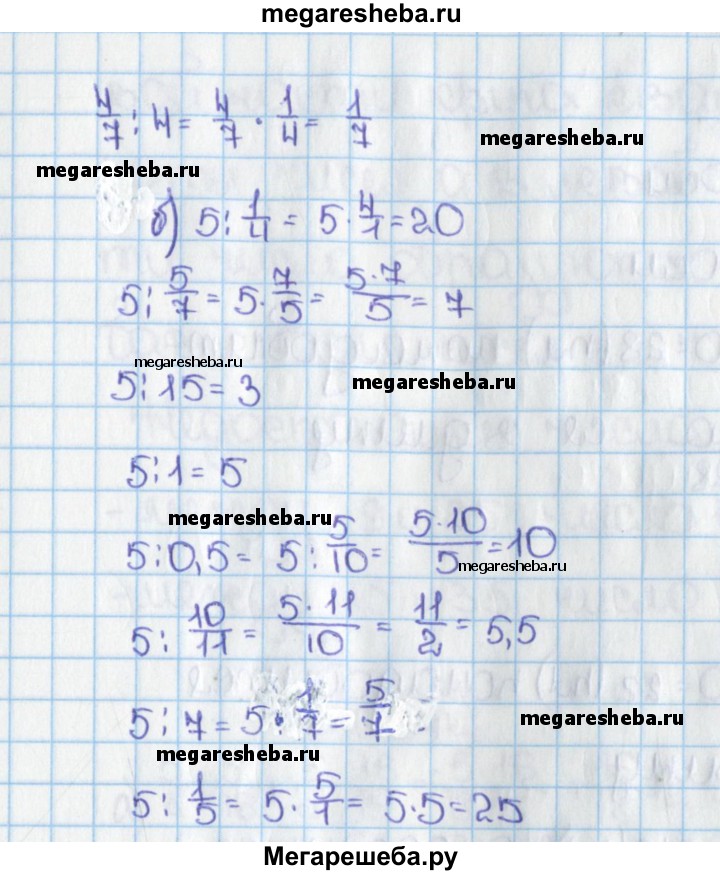 megaresheba.ru
4/7 : 4 = 4/7 · 1/4 = 1/7
megaresheba.ru
megaresheba.ru
б) 5 : 1/4 = 5 · 4/1 = 20
5 : 5/7 = 5 · 7/5 = 5·7/5 = 7
megaresheba.ru
5 : 15 = 3
megaresheba.ru
5 : 1 = 5
megaresheba.ru
5 : 0,5 = 5 : 5/10 = 5·10/5 = 10
megaresheba.ru
5 : 10/11 = 5·11/10 = 11/2 = 5,5
5 : 7 = 5 · 1/7 = 5/7
megaresheba.ru
megaresheba.ru
5 : 1/5 = 5 · 5/1 = 5 · 5 = 25
Мегарешеба.ру